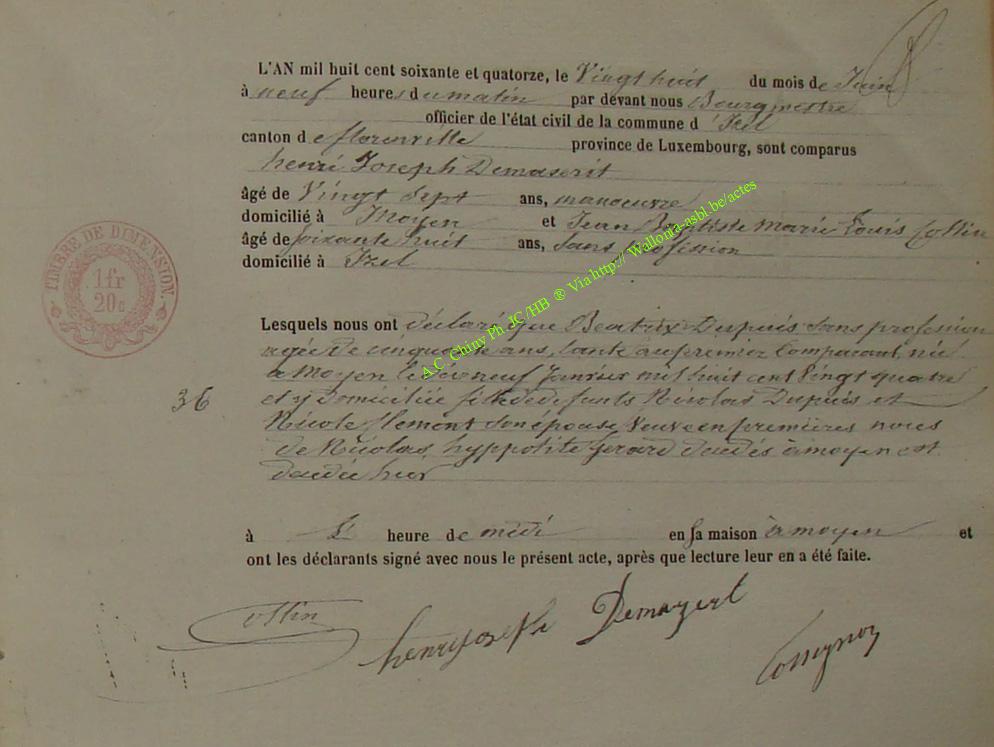 L'AN mil huit cent soixante et quatorze, le Vingt huit du mois de Juin
à neuf heures du matin par devant nous Bourgmestre
officier de l'état civil de la commune d'Izel
canton de florenville province de Luxembourg, sont comparus
henri Joseph Demaserit
âgé de Vingt sept ans, manoeuvre
domicilié à Moyen et Jean Baptiste marie Louis Collin
âgé de soixante huit ans, sans profession
domicilié à Izel
TIMBRE DE DIMENSION.
1 fr
20 c
Lesquels nous ont déclaré que Beatrix Dupuis sans profession
agée de cinquante ans, tante au premier Comparant, née
a Moyen le dix neuf Janvier mil huit cent Vingt quatre
et y domiciliée fille de defunts Nicolas Dupuis et
36
Nicole flemont son épouse, Veuve en premières noces
de Nicolas hyppolite Gerard decedés à moyen est
decedée hier
à heure de midi en sa maison à moyen et
ont les déclarants signé avec nous le présent acte, après que lecture leur en a été faite.
Collin
henry joseph Demazert
A.C. Chiny Ph JC/HB ® Via http://Wallonia-asbl.be/actes